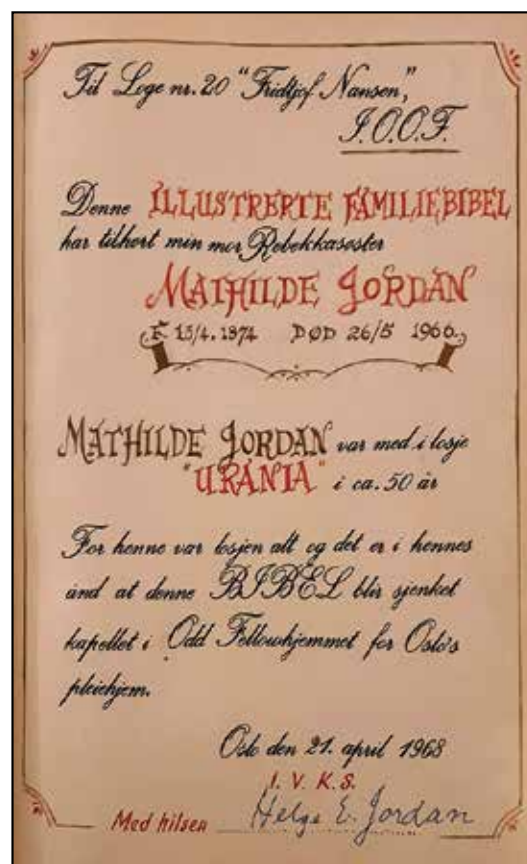 Til Loge nr. 20 "Fridtjof Nansen",
I.O.O.F.
Denne ILLUSTRERTE FAMILIEBIBEL
har tilhørt min mor Rebekkasøster
MATHILDE JORDAN
F. 13/4. 1874 DØD 26/5 1966.
MATHILDE JORDAN var med i losje
"URANIA" i ca. 50 år
For henne var losjen alt og det er i hennes
ånd at denne BIBEL blir sjenket
kapellet i Odd Fellowhjemmet for Oslo's
pleiehjem.
Oslo den 21. april 1968
I. V. K. S.
Med hilsen Helge E. Jordan